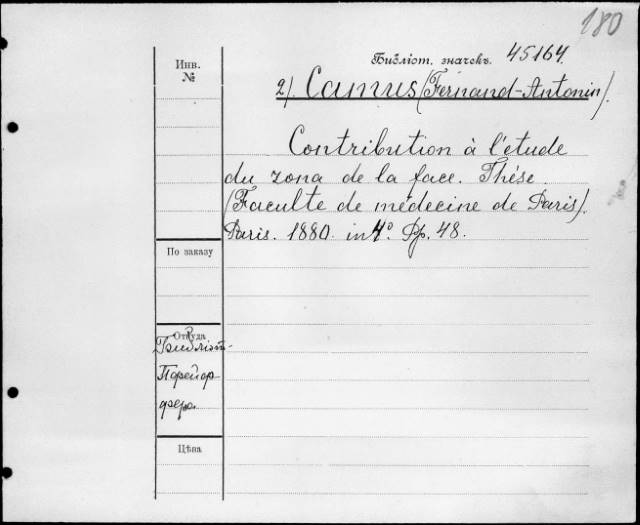 180
Инв. №
Библіот. значекъ. 45164.
2). Camus (Fernand-Antonin).
Contribution à l'étude
du zona de la face. Thése.
(Faculte de médecine de Paris).
Paris. 1880. in 4º. Pp. 48.
По заказу
Откуда
Библіот.
Цѣна